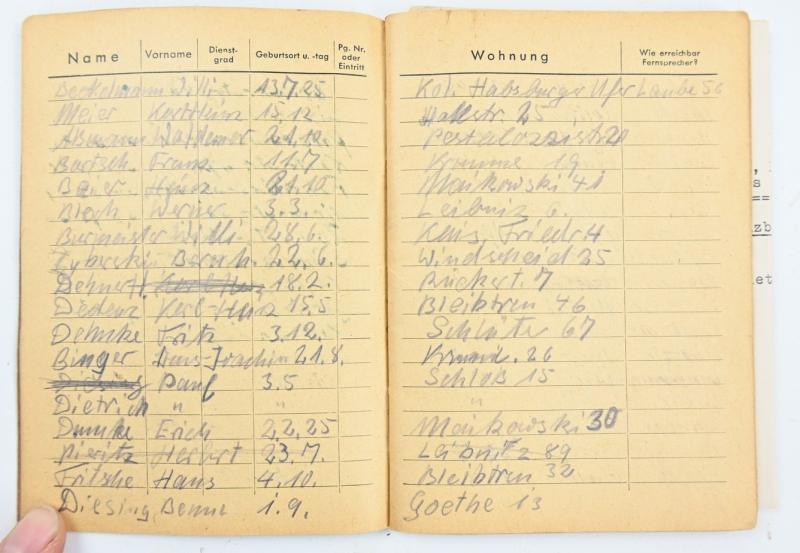 Name Vorname Dienst-grad Geburtsort u. -tag Pg. Nr. oder Eintritt
Beckelmann Willi 13.7.25
Meier 15.12
Waldemar 21.10.
Bartsch Franz 11.7
Heinz 21.10
Werner 3.3.
Burmeister Willi 28.6.
22.6.
Dehnert 18.2.
Karl-Heinz 15.5
Dehmke Fritz 3.12.
Binger Hans-Joachim 21.8.
Diesing Paul 3.5
Dietrich " "
Erich 2.2.25
Herbert 23.7.
Fritsche Hans 4.10.
Diesing, Benno 1.9.
Wohnung Wie erreichbar Fernsprecher?
Kol. Habsburger Ufer Laube 56
25
Pestalozzistr 20
Krumme 19
Maikowski 41
Leibniz 6.
Kais. Friedr. 4
Windscheid 25
Rückert. 7
Bleibtreu 46
Schlüter 67
26
Schloß 15
"
Maikowski 30
Leibnitz 89
Bleibtreu 32
Goethe 13